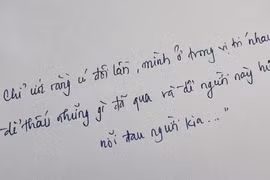 Chỉ ước rằng ư đôi lần, mình ở trong vị trí nhau
để thấu những gì đã qua và để người này h
nỗi đau người kia..."